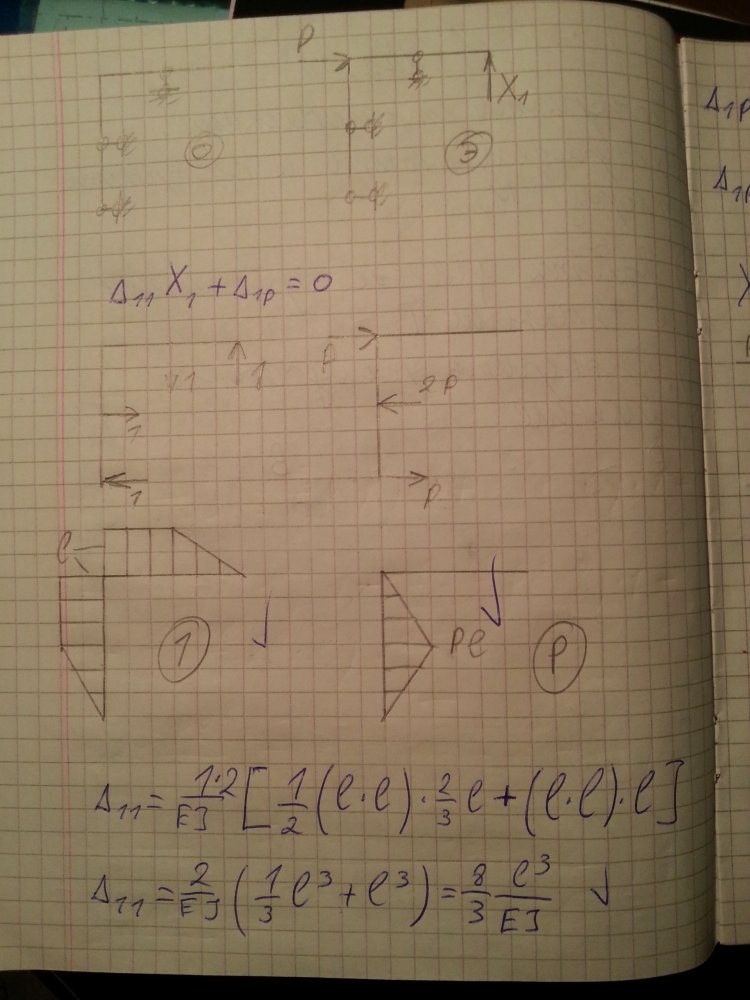 P
X₁
0
Δ₁₁X₁ + Δ₁ₚ = 0
1
P
2P
1
1
P
l
1
Pl
P
Δ₁₁ = 1·2/EJ [ 1/2 (l·l) · 2/3 l + (l·l)·l ]
Δ₁₁ = 2/EJ ( 1/3 l³ + l³ ) = 8/3 l³/EJ
Δ₁ₚ
Δ₁ₚ
X